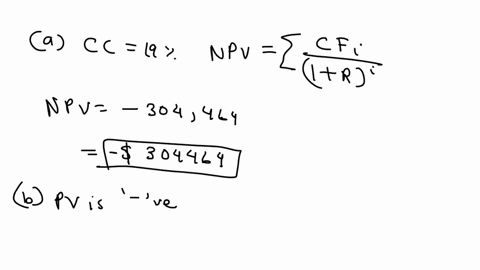 (a) CC = 19%. NPV = Σ CFi / (1+R)^i
NPV = - 304,464
= -$ 304464
(b) PV is '-'ve